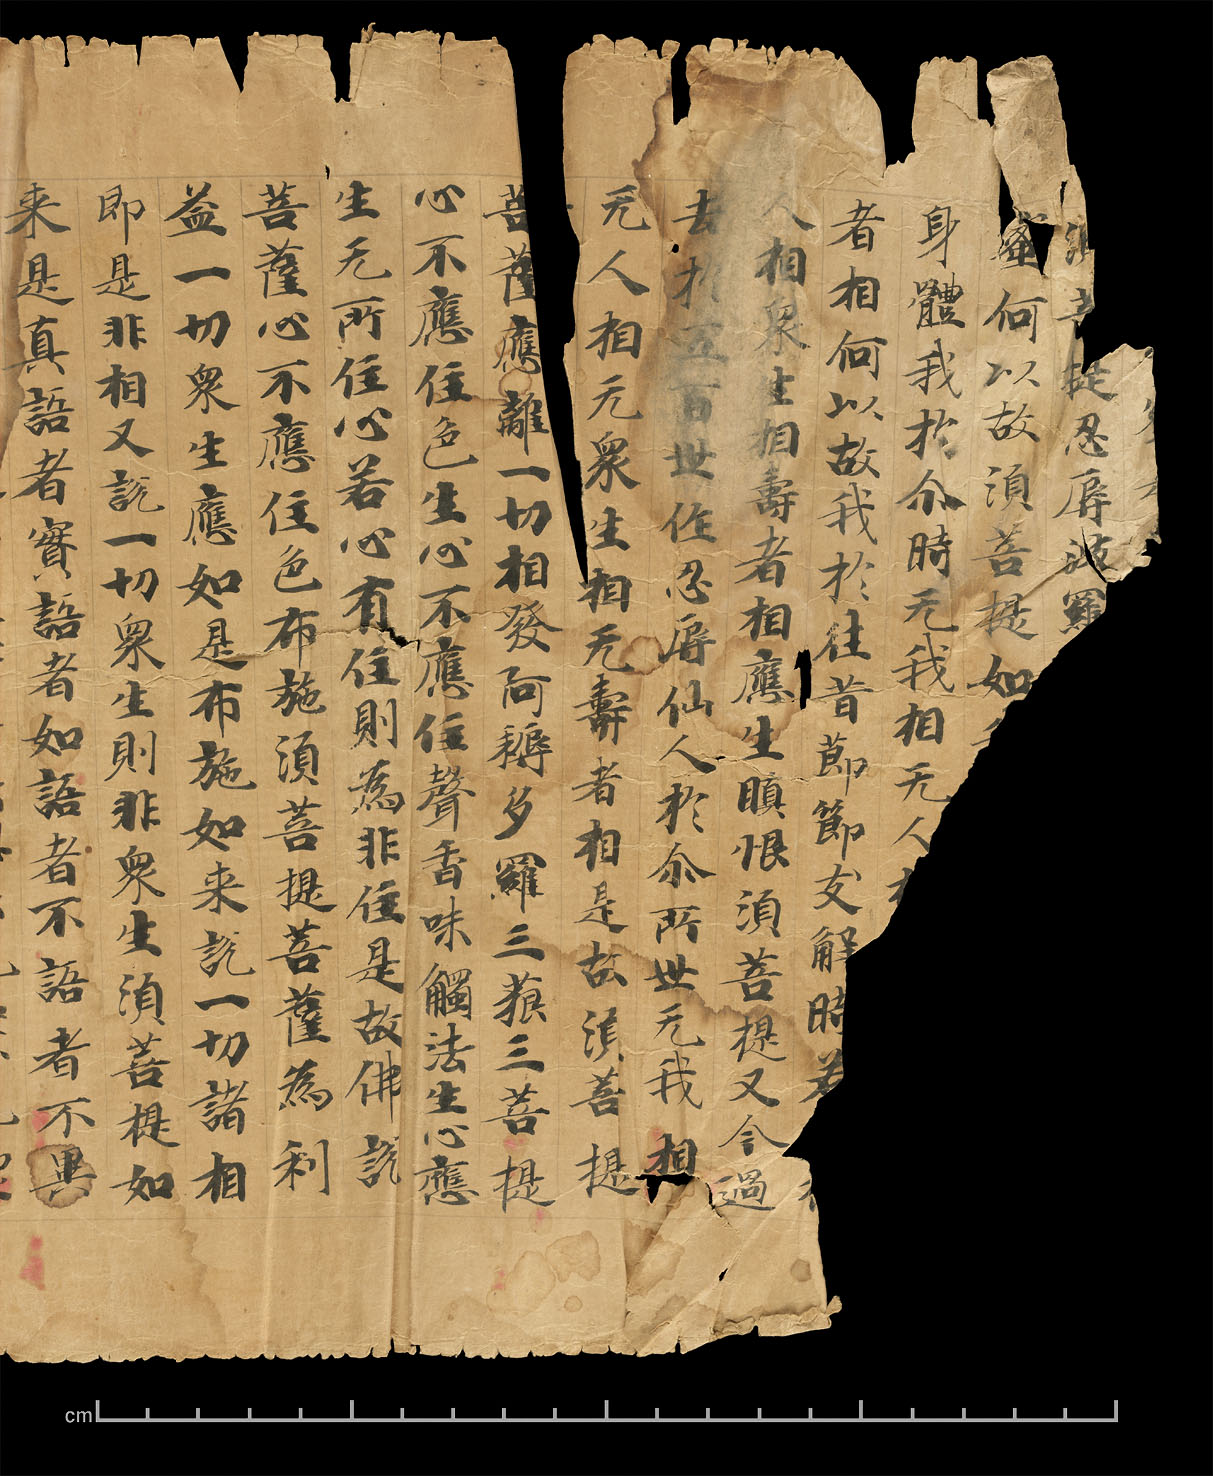 提忍辱波羅
蜜何以故湏菩提如
身體我於尒時无我相无人
者相何以故我於往昔節節支解時若
人相衆生相壽者相應生瞋恨湏菩提又念過
去於五百世作忍辱仙人於尒所世无我相
无人相无衆生相无壽者相是故湏菩提
菩薩應離一切相發阿耨多羅三藐三菩提
心不應住色生心不應住聲香味觸法生心應
生无所住心若心有住則為非住是故佛說
菩薩心不應住色布施湏菩提菩薩為利
益一切衆生應如是布施如来說一切諸相
即是非相又說一切衆生則非衆生湏菩提如
来是真語者實語者如語者不語者不異
cm